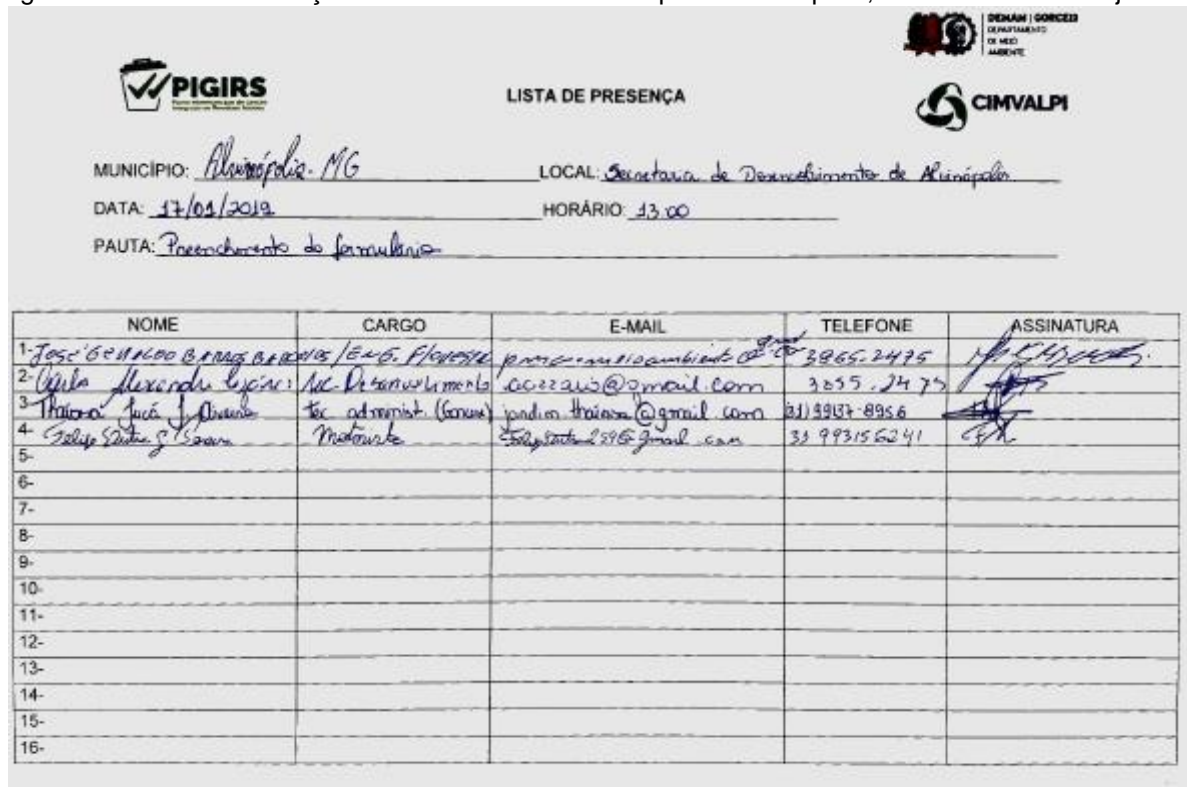 DEMAM | GORCEIX
DEPARTAMENTO
DE MEIO
AMBIENTE
PIGIRS
LISTA DE PRESENÇA
CIMVALPI
MUNICÍPIO: Alvinópolis - MG
LOCAL: Secretaria de Desenvolvimento de Alvinópolis
DATA: 17/01/2019
HORÁRIO: 13:00
PAUTA: Preenchimento do formulário
NOME CARGO E-MAIL TELEFONE ASSINATURA
1- José Geraldo Barros / Eng. Florestal 3865-2475
2- Alexandre Sec. Desenvolvimento @gmail.com 3855-2475
3- Thaiana Jucá tec administ. jardim.thaiana@gmail.com (31) 99137-8956
4- Felipe Motorista gmail.com 31 993156241
5-
6-
7-
8-
9-
10-
11-
12-
13-
14-
15-
16-